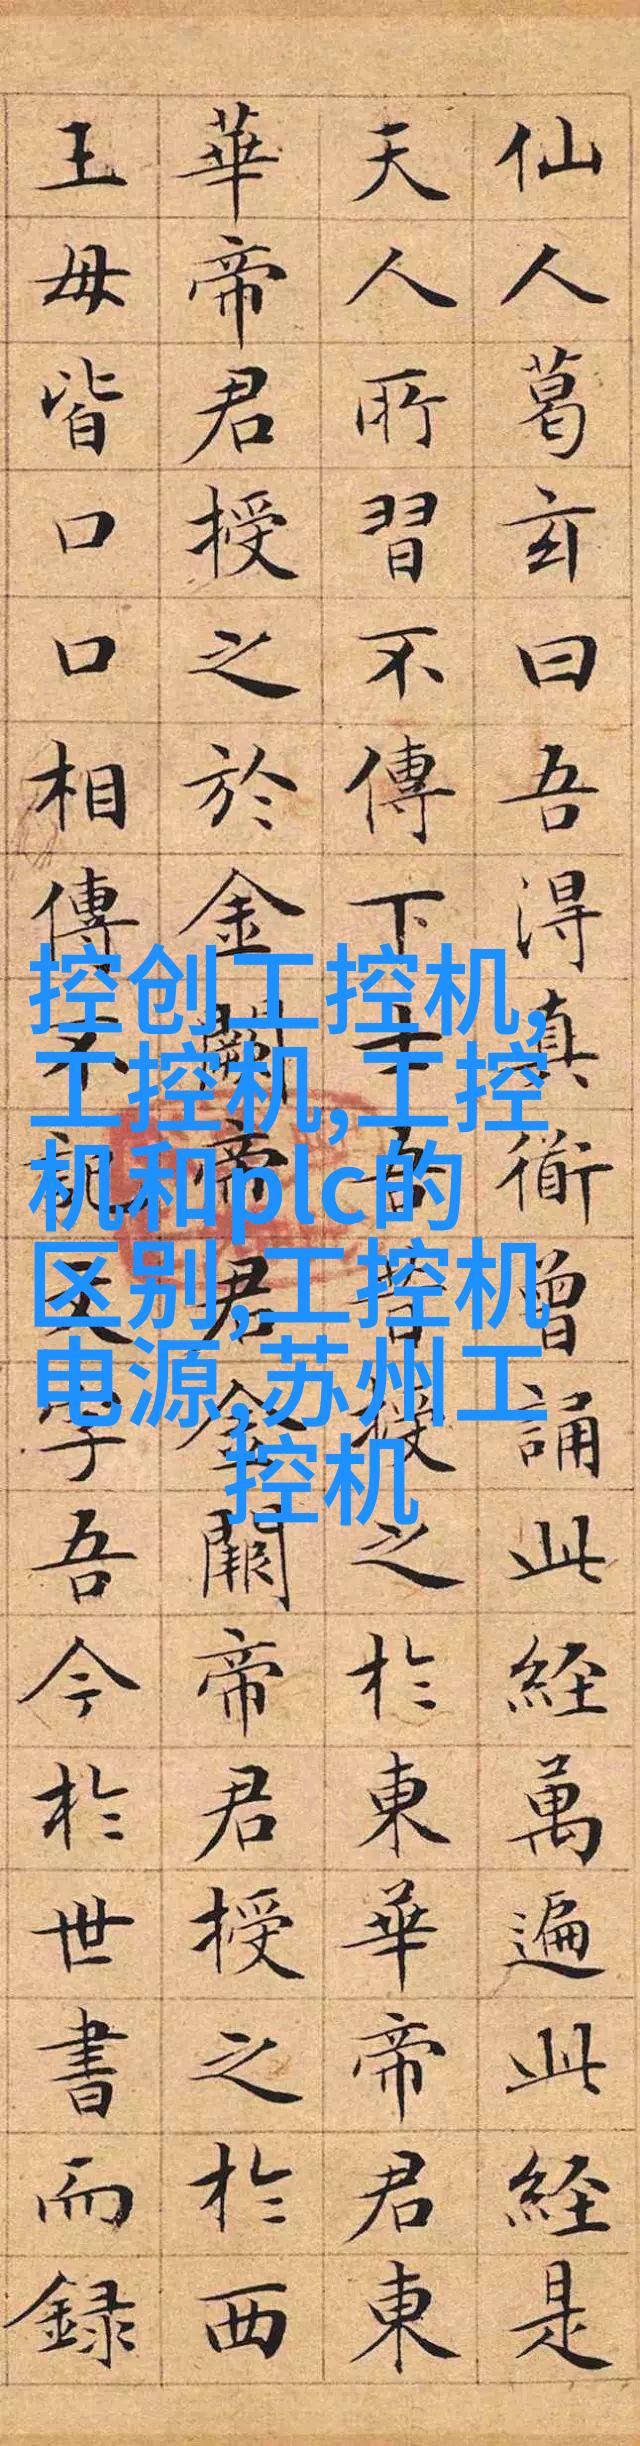 仙人葛玄曰吾淂真衜曾誦此経萬遍此経是
天人所習不傳下士吾昔授之於東華帝君東
華帝君授之於金闕帝君金闕帝君授之於西
王母皆口口相傳不記文字吾今於世書而録
控创工控机,
工控机,工控
机和plc的
区别,工控机
电源,苏州工
控机